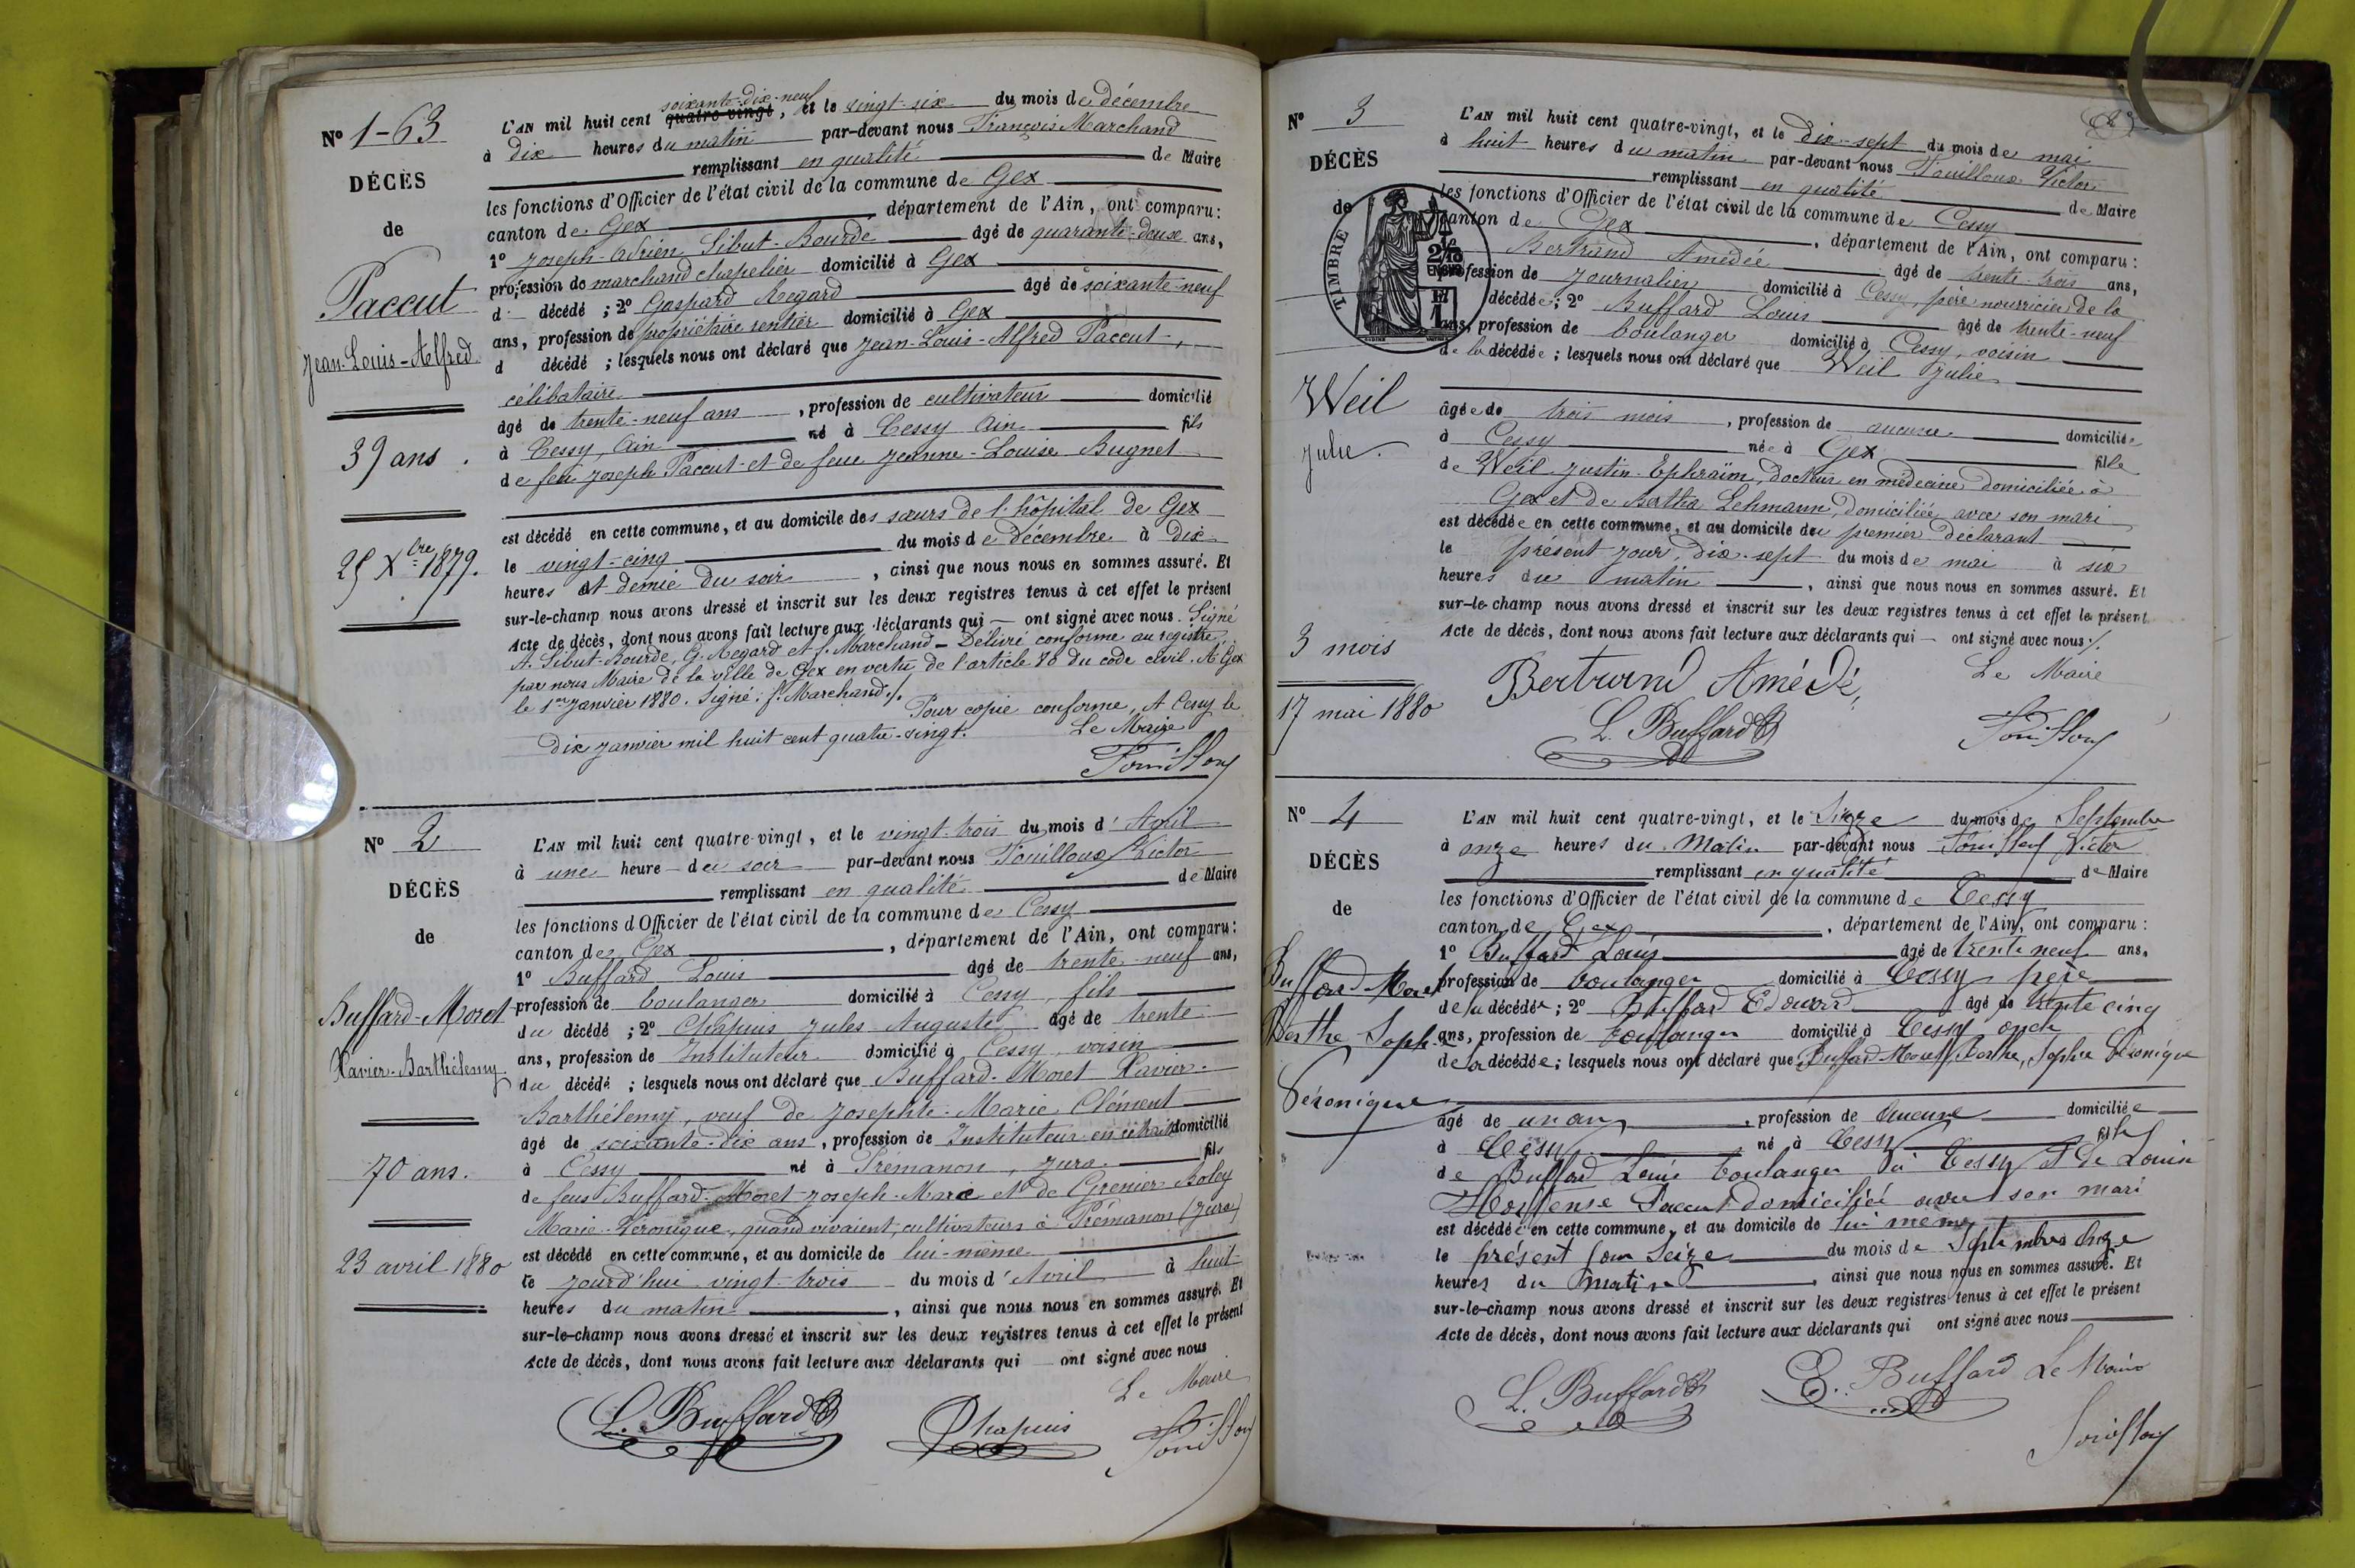 N° 1-63
DÉCÈS
de
Paccut
Jean-Louis-Alfred
39 ans.
25 Xbre 1879.
soixante-dix-neuf
L'AN mil huit cent quatre-vingt, et le vingt-six du mois de décembre
à dix heures du matin par-devant nous François Marchand
remplissant en qualité de Maire
les fonctions d'Officier de l'état civil de la commune de Gex
canton de Gex département de l'Ain, ont comparu:
1° Joseph-Adrien Sibut-Bourde âgé de quarante-deux ans,
profession de marchand chapelier domicilié à Gex
d décédé ; 2° Gaspard Regard âgé de soixante-neuf
ans, profession de propriétaire rentier domicilié à Gex
d décédé ; lesquels nous ont déclaré que Jean-Louis-Alfred Paccut,
célibataire
âgé de trente-neuf ans, profession de cultivateur domicilié
à Cessy, Ain né à Cessy Ain fils
de feu Joseph Paccut et de feue Jeanne-Louise Bugnet
est décédé en cette commune, et au domicile des sœurs de l'hôpital de Gex
le vingt-cinq du mois de décembre à dix
heures et demie du soir, ainsi que nous nous en sommes assuré. Et
sur-le-champ nous avons dressé et inscrit sur les deux registres tenus à cet effet le présent
Acte de décès, dont nous avons fait lecture aux déclarants qui — ont signé avec nous. Signé
A. Sibut-Bourde, G. Regard et f. Marchand - Délivré conforme au registre
par nous Maire de la ville de Gex en vertu de l'article 80 du code civil. A Gex
le 1er janvier 1880. Signé: f. Marchand ./.
Pour copie conforme, A Cessy le
dix janvier mil huit cent quatre-vingt.
Le Maire
Fouilloux
N° 2
DÉCÈS
de
Buffard-Moret
Xavier-Barthélemy
70 ans.
23 avril 1880
L'AN mil huit cent quatre-vingt, et le vingt-trois du mois d'Avril
à une heure du soir par-devant nous Fouilloux Victor
remplissant en qualité de Maire
les fonctions d'Officier de l'état civil de la commune de Cessy
canton de Gex, département de l'Ain, ont comparu:
1° Buffard Louis âgé de trente-neuf ans,
profession de boulanger domicilié à Cessy, fils
du décédé ; 2° Chapuis Jules Auguste âgé de trente
ans, profession de Instituteur domicilié à Cessy, voisin
du décédé ; lesquels nous ont déclaré que Buffard-Moret Xavier-
Barthélemy, veuf de Josephte-Marie Clément
âgé de soixante-dix ans, profession de Instituteur en retraite domicilié
à Cessy né à Prémanon, Jura fils
de feus Buffard-Moret Joseph-Marie et de Grenier-Boley
Marie-Véronique, quand vivaient, cultivateurs à Prémanon (Jura)
est décédé en cette commune, et au domicile de lui-même
le jourd'hui vingt-trois du mois d'Avril à huit
heures du matin, ainsi que nous nous en sommes assuré. Et
sur-le-champ nous avons dressé et inscrit sur les deux registres tenus à cet effet le présent
Acte de décès, dont nous avons fait lecture aux déclarants qui — ont signé avec nous
Le Maire
L. Buffard Chapuis Fouilloux
N° 3
DÉCÈS
de
TIMBRE
Weil
Julie.
3 mois
17 mai 1880
L'AN mil huit cent quatre-vingt, et le dix-sept du mois de mai
à huit heures du matin par-devant nous Fouilloux Victor
remplissant en qualité de Maire
les fonctions d'Officier de l'état civil de la commune de Cessy
canton de Gex, département de l'Ain, ont comparu:
Bertrand Amédée âgé de trente-trois ans,
profession de journalier domicilié à Cessy, père nourricier de la
décédée ; 2° Buffard Louis âgé de trente-neuf
ans, profession de boulanger domicilié à Cessy, voisin
de la décédée ; lesquels nous ont déclaré que Weil Julie
âgée de trois mois, profession de aucune domiciliée
à Cessy née à Gex fille
de Weil Justin-Ephraïm, docteur en médecine domiciliée à
Gex et de Bertha Lehmann, domiciliée avec son mari
est décédée en cette commune, et au domicile du premier déclarant
le présent jour, dix-sept du mois de mai à six
heures du matin, ainsi que nous nous en sommes assuré. Et
sur-le-champ nous avons dressé et inscrit sur les deux registres tenus à cet effet le présent
Acte de décès, dont nous avons fait lecture aux déclarants qui — ont signé avec nous ./.
Bertrand Amédé,
Le Maire
L. Buffard
Fouilloux
N° 4
DÉCÈS
de
Buffard Moret
Berthe Soph.
Véronique
L'AN mil huit cent quatre-vingt, et le Seize du mois de Septembre
à onze heures du Matin par-devant nous Fouilloux Victor
remplissant en qualité de Maire
les fonctions d'Officier de l'état civil de la commune de Cessy
canton de Gex, département de l'Ain, ont comparu:
1° Buffard Louis âgé de trente neuf ans,
profession de boulanger domicilié à Cessy père
de la décédée ; 2° Buffard Edouard âgé de trente cinq
ans, profession de boulanger domicilié à Cessy oncle
de la décédée ; lesquels nous ont déclaré que Buffard-Moret, Berthe, Sophie Véronique
âgé de un an, profession de Aucune domiciliée
à Cessy né à Cessy fille
de Buffard Louis boulanger à Cessy et de Louise
Hortense Paccut domiciliée avec son mari
est décédée en cette commune, et au domicile de lui même
le présent jour Seize du mois de Septembre onze
heures du matin, ainsi que nous nous en sommes assuré. Et
sur-le-champ nous avons dressé et inscrit sur les deux registres tenus à cet effet le présent
Acte de décès, dont nous avons fait lecture aux déclarants qui ont signé avec nous
L. Buffard E. Buffard Le Maire
Fouilloux